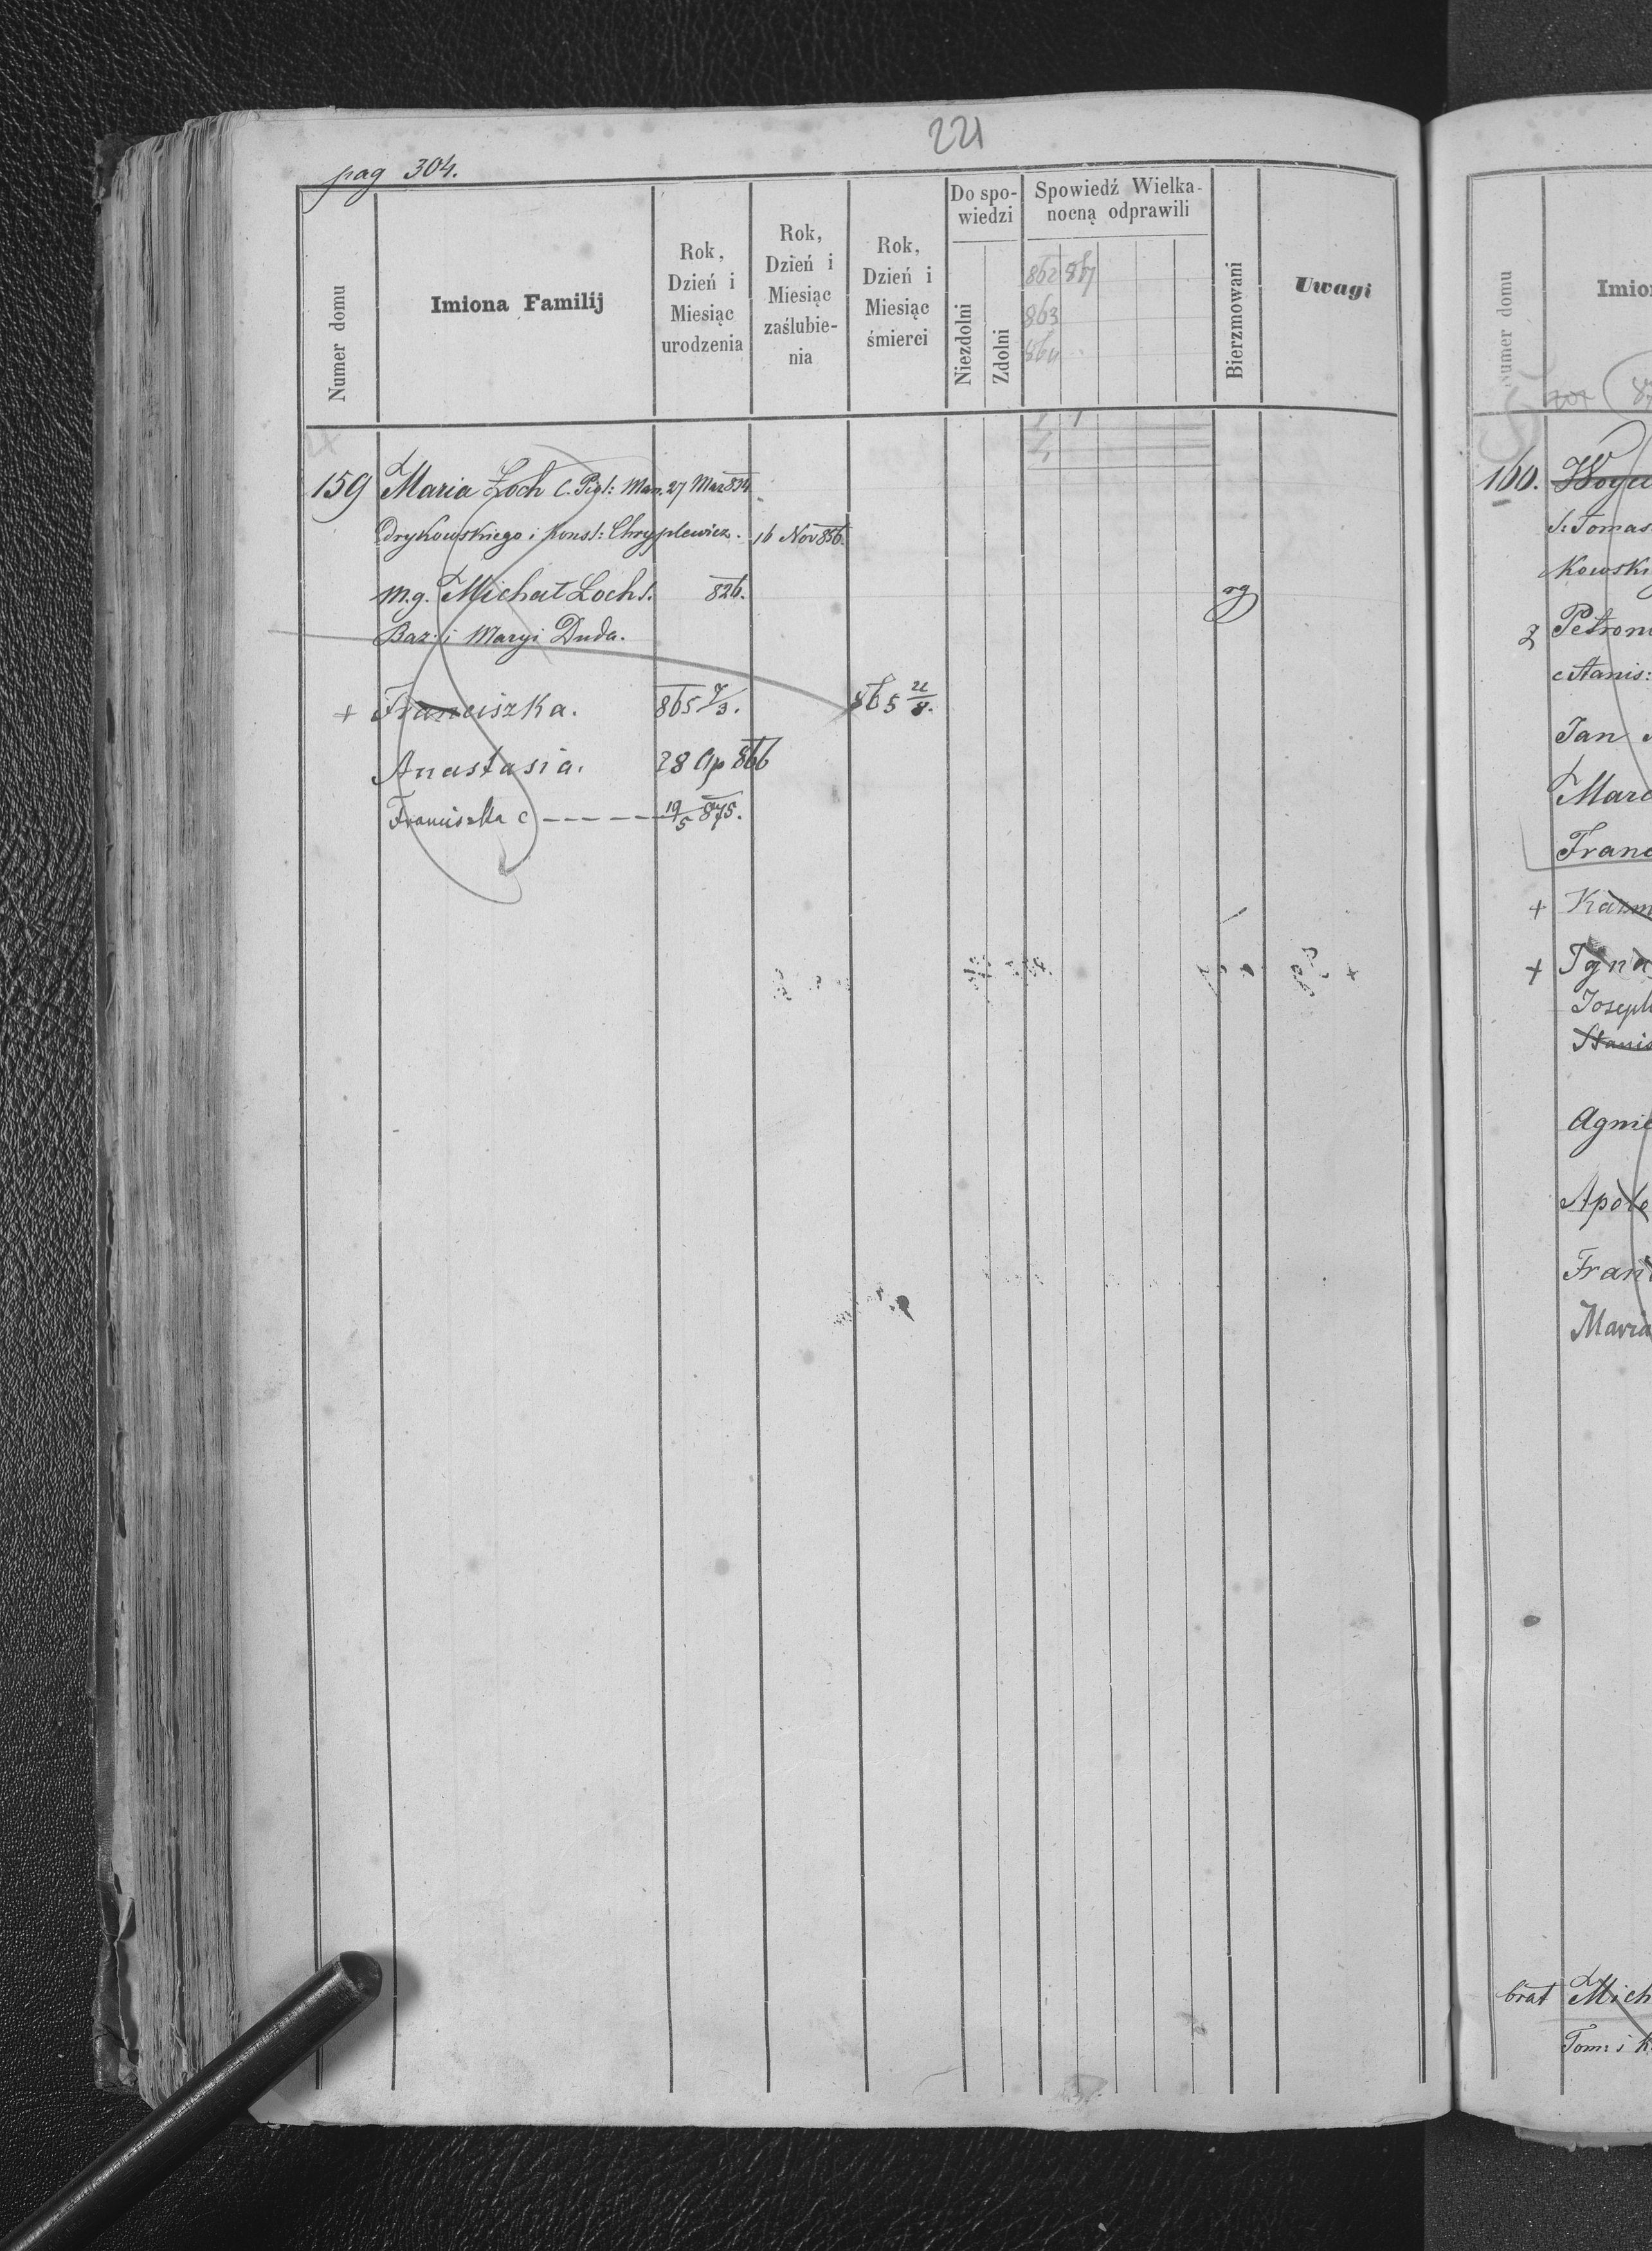 221
pag 304.
Numer domu
Imiona Familij
Rok,
Dzień i
Miesiąc
urodzenia
Rok,
Dzień i
Miesiąc
zaślubie-
nia
Rok,
Dzień i
Miesiąc
śmierci
Do spo-
wiedzi
Niezdolni
Zdolni
Spowiedź Wielka-
nocną odprawili
862 867
863
864
Bierzmowani
Uwagi
159 Maria Loch c. 27 Mar 834
Drykowskiego i Konst: Chryplewicz. 16 Nov 856.
m.g. Michał Loch s. 826.
Baz: i Maryi Duda.
+ Franciszka. 865 7/3. 865 21/8.
Anastasia. 28 Ap 866
Franciszka c 19/5 875.
Numer domu
Imio
160.
s: Tomas
kowski
2 Petron
c Stanis:
Jan
Mar
Franc
+ Kazm
+ Igna
Joseph
Stanis
Agnie
Apolo
Fran
Maria
brat Mich
Tom: i K